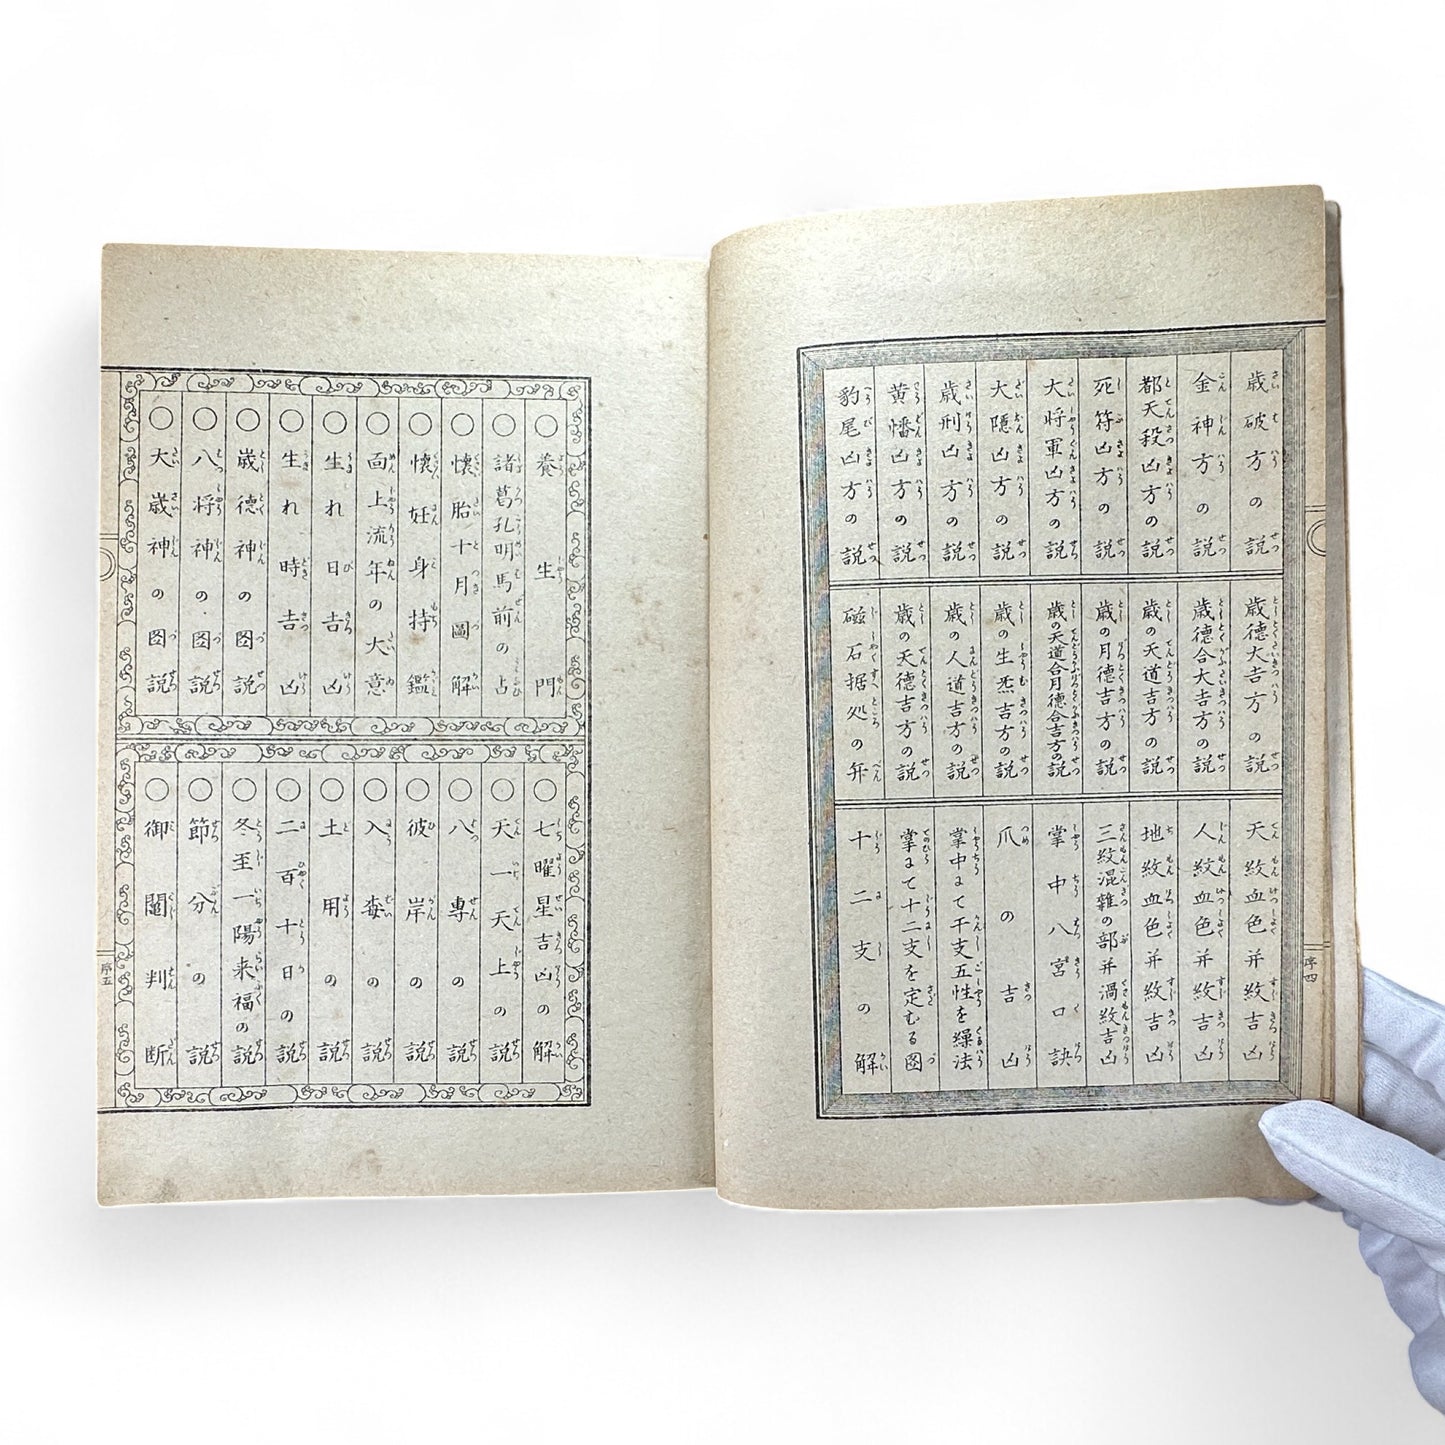 歳破方の説
金神方の説
都天殺凶方の説
死符凶方の説
大将軍凶方の説
大隠凶方の説
歳刑凶方の説
黄幡凶方の説
豹尾凶方の説
歳徳大吉方の説
歳徳合大吉方の説
歳の天道吉方の説
歳の月徳吉方の説
歳の天道合月徳合吉方の説
歳の生炁吉方の説
歳の人道吉方の説
歳の天徳吉方の説
磁石据処の弁
天紋血色并紋吉凶
人紋血色并紋吉凶
地紋血色并紋吉凶
三紋混雑の部并渦紋吉凶
掌中八宮口訣
爪の吉凶
掌中にて干支五性を繰法
掌にて十二支を定むる図
十二支の解
序四
○養生門
○諸葛孔明馬前の占
○懐胎十月圖解
○懐妊身持鑑
○面上流年の大意
○生れ日吉凶
○生れ時吉凶
○歳徳神の図説
○八将神の図説
○大歳神の図説
○七曜星吉凶の解
○天一天上の説
○八專の説
○彼岸の説
○入梅の説
○土用の説
○二百十日の説
○冬至一陽来福の説
○節分の説
○御鬮判断
序五